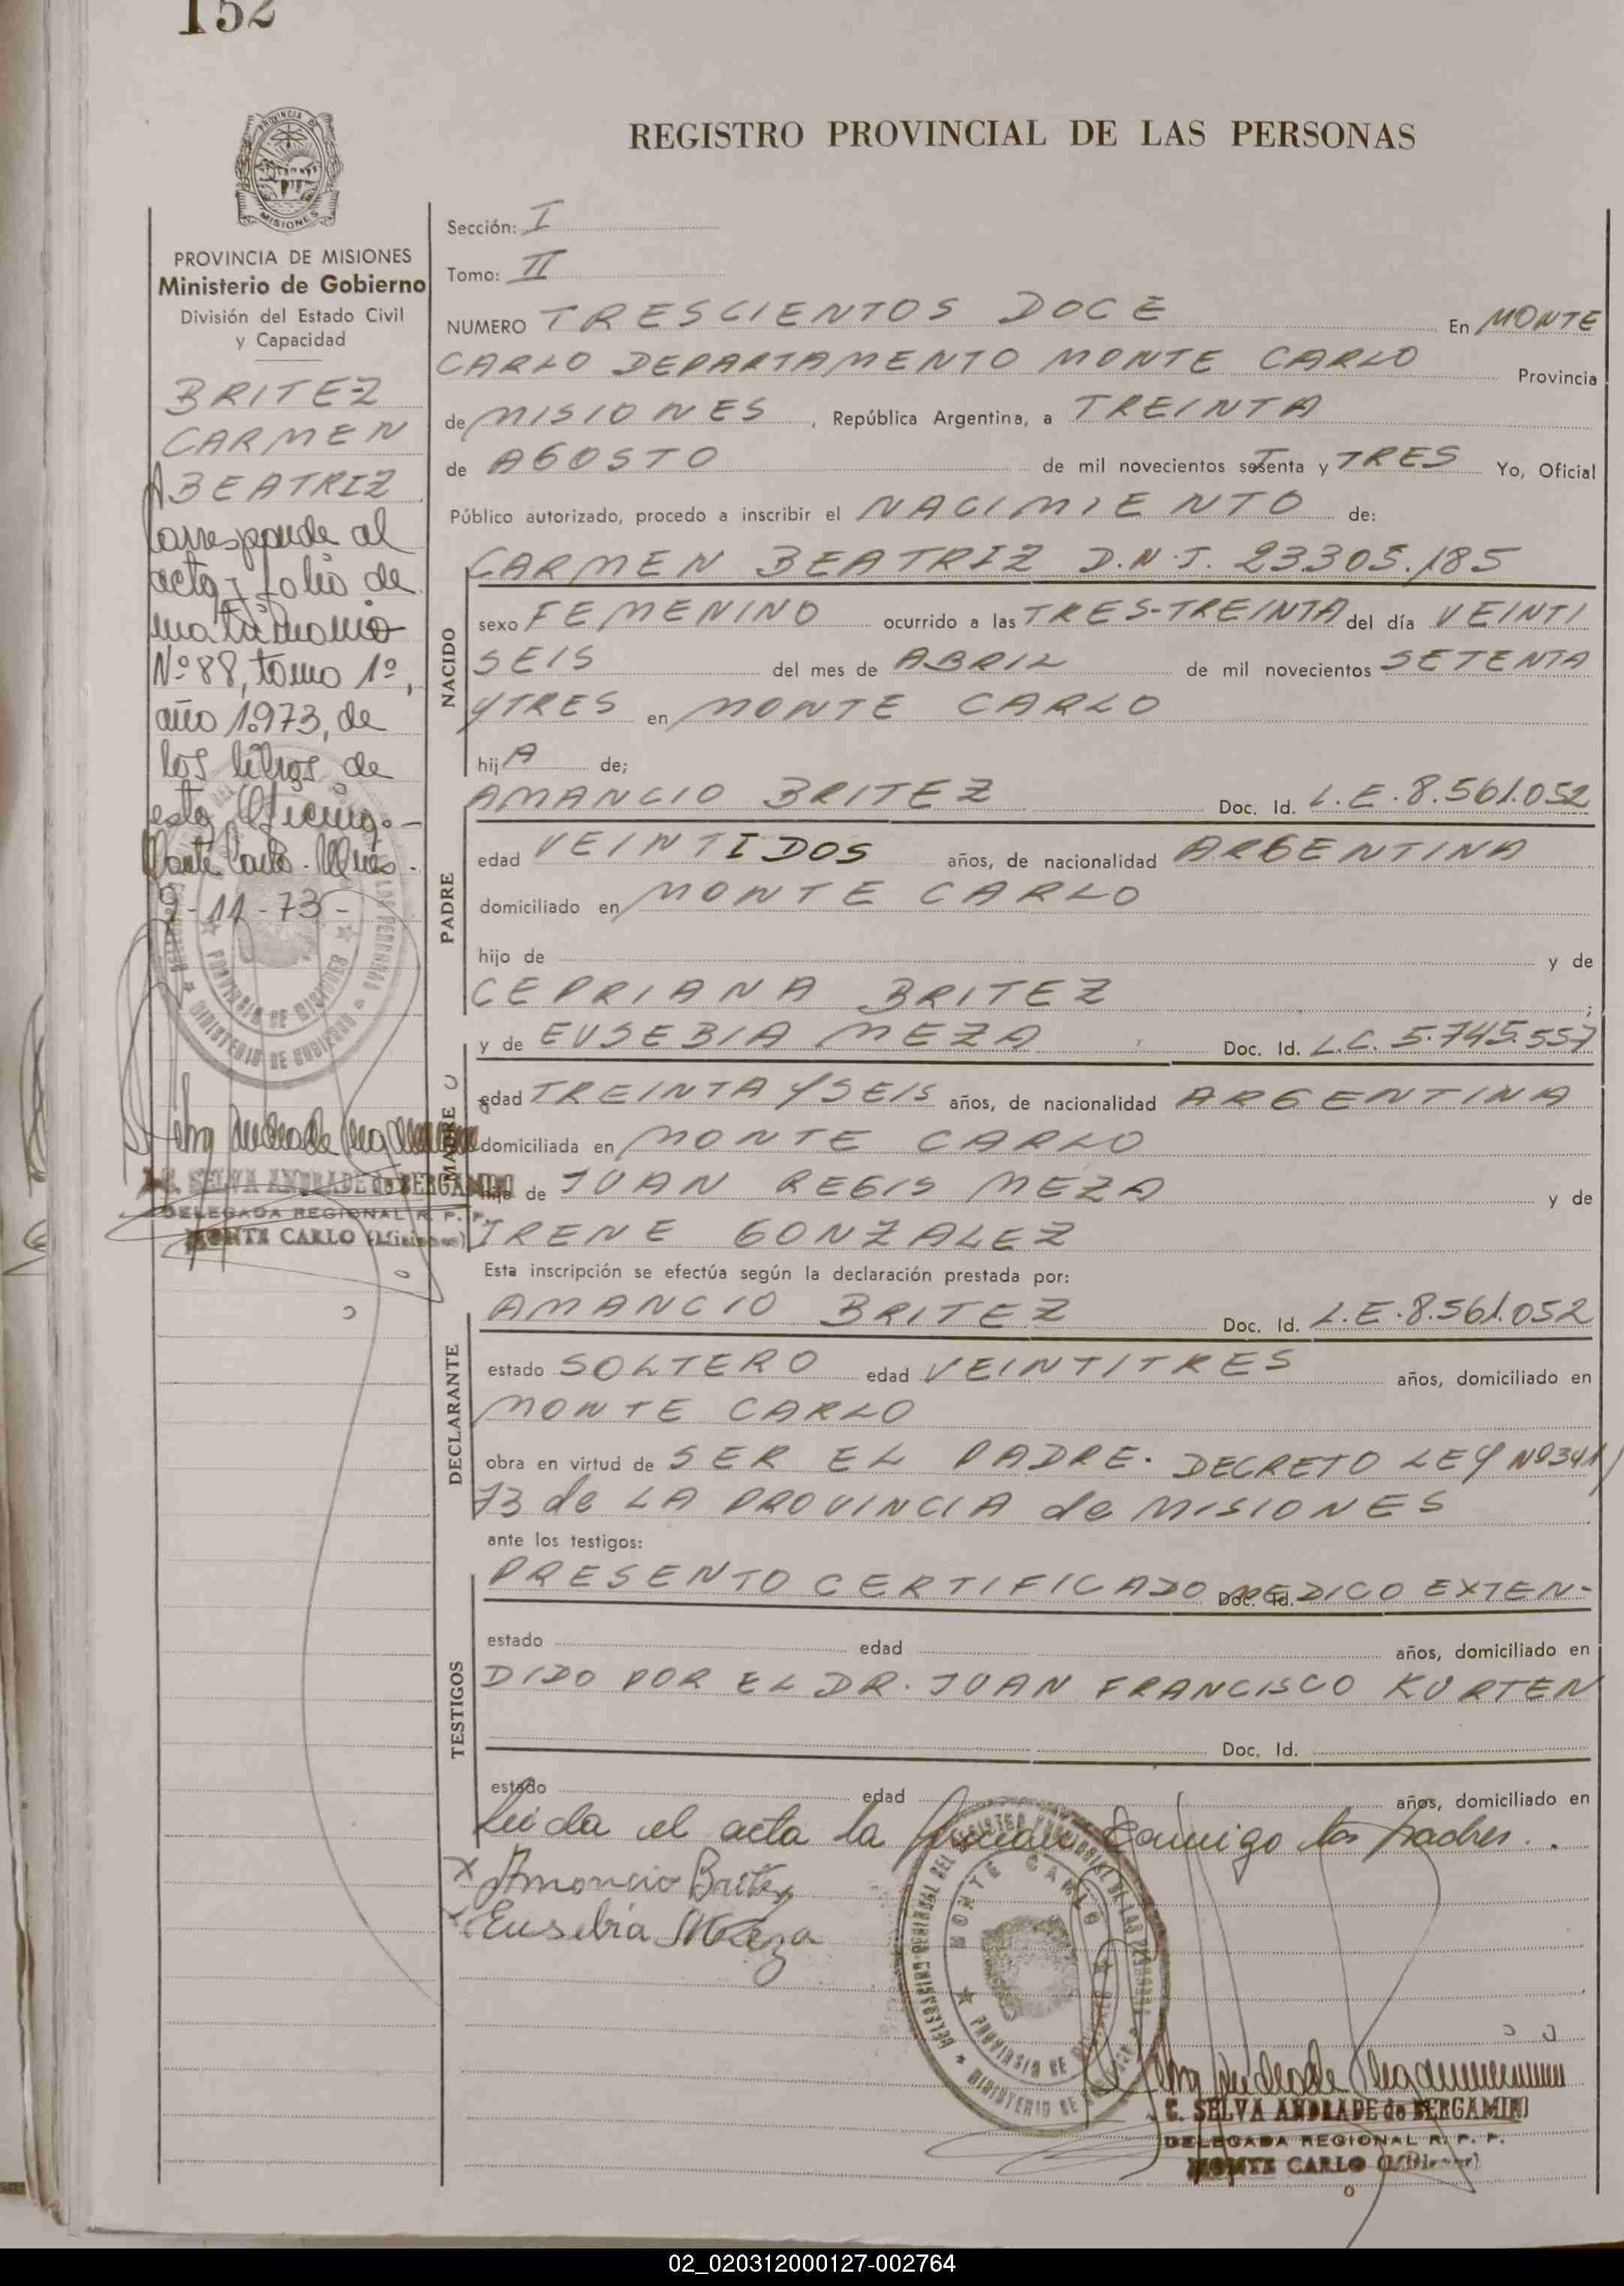 152
REGISTRO PROVINCIAL DE LAS PERSONAS
PROVINCIA DE MISIONES
Ministerio de Gobierno
División del Estado Civil
y Capacidad
BRITEZ
CARMEN
BEATRIZ
Corresponde al
acta y folio de
matrimonio
Nº 88, tomo 1º,
año 1973, de
los libros de
esta Oficina.-
Monte Carlo - Mnes -
9-11-73-
C. SELVA ANDRADE de BERGAMINI
DELEGADA REGIONAL R. P. P.
MONTE CARLO (Misiones)
Sección: I
Tomo: II
NUMERO TRESCIENTOS DOCE En MONTE
CARLO DEPARTAMENTO MONTE CARLO Provincia
de MISIONES, República Argentina, a TREINTA
de AGOSTO de mil novecientos setenta y TRES Yo, Oficial
Público autorizado, procedo a inscribir el NACIMIENTO de:
NACIDO
CARMEN BEATRIZ D.N.I. 23.305.185
sexo FEMENINO ocurrido a las TRES-TREINTA del día VEINTI
SEIS del mes de ABRIL de mil novecientos SETENTA
YTRES en MONTE CARLO
hijA de;
PADRE
AMANCIO BRITEZ Doc. Id. L.E.8.561.052
edad VEINTIDOS años, de nacionalidad ARGENTINA
domiciliado en MONTE CARLO
hijo de y de
CEPRIANA BRITEZ ;
MADRE
y de EUSEBIA MEZA Doc. Id. L.C. 5.745.557
edad TREINTA Y SEIS años, de nacionalidad ARGENTINA
domiciliada en MONTE CARLO
hija de JUAN REGIS MEZA y de
IRENE GONZALEZ
Esta inscripción se efectúa según la declaración prestada por:
DECLARANTE
AMANCIO BRITEZ Doc. Id. L.E.8.561.052
estado SOLTERO edad VEINTITRES años, domiciliado en
MONTE CARLO
obra en virtud de SER EL PADRE. DECRETO LEY Nº341/
73 de LA PROVINCIA de MISIONES
ante los testigos:
TESTIGOS
PRESENTO CERTIFICADO MEDICO EXTEN- Doc. Id.
estado edad años, domiciliado en
DIDO POR EL DR. JUAN FRANCISCO KURTEN
Doc. Id.
estado edad años, domiciliado en
Leida el acta la firman conmigo los padres..
x Amancio Britez
x Eusebia Meza
MONTE CARLO
PROVINCIA DE MISIONES
C. SELVA ANDRADE de BERGAMINI
DELEGADA REGIONAL R. P. P.
MONTE CARLO (Misiones)
02_020312000127-002764